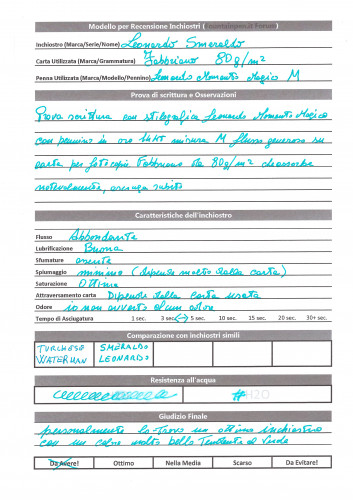 Modello per Recensione Inchiostri (
Inchiostro (Marca/Serie/Nome) Leonardo Smeraldo
Carta Utilizzata (Marca/Grammatura) Fabbriano 80g/m2
Penna Utilizzata (Marca/Modello/Pennino) Leonardo Momento Magico M
Prova di scrittura e Osservazioni
Prova scrittura con stilografica Leonardo Momento Magico
con pennino in oro 14KT misura M flusso generoso su
carta per fotocopie Fabbriano da 80g/m2 che assorbe
notevolmente, asciuga subito
Caratteristiche dell'inchiostro
Flusso Abbondante
Lubrificazione Buona
Sfumature assente
Spiumaggio minimo (dipende molto dalla carta)
Saturazione Ottima
Attraversamento carta Dipende della carta usata
Odore io non avverto alcun odore
Tempo di Asciugatura 1 sec. 3 sec. 5 sec. 10 sec. 15 sec. 20 sec. 30+ sec.
Comparazione con inchiostri simili
TURCHESE SMERALDO
WATERMAN LEONARDO
Resistenza all'acqua
H2O
Giudizio Finale
personalmente lo trovo un ottimo inchiostro
con un colore molto bello Tendente al Verde
Da Avere! Ottimo Nella Media Scarso Da Evitare!